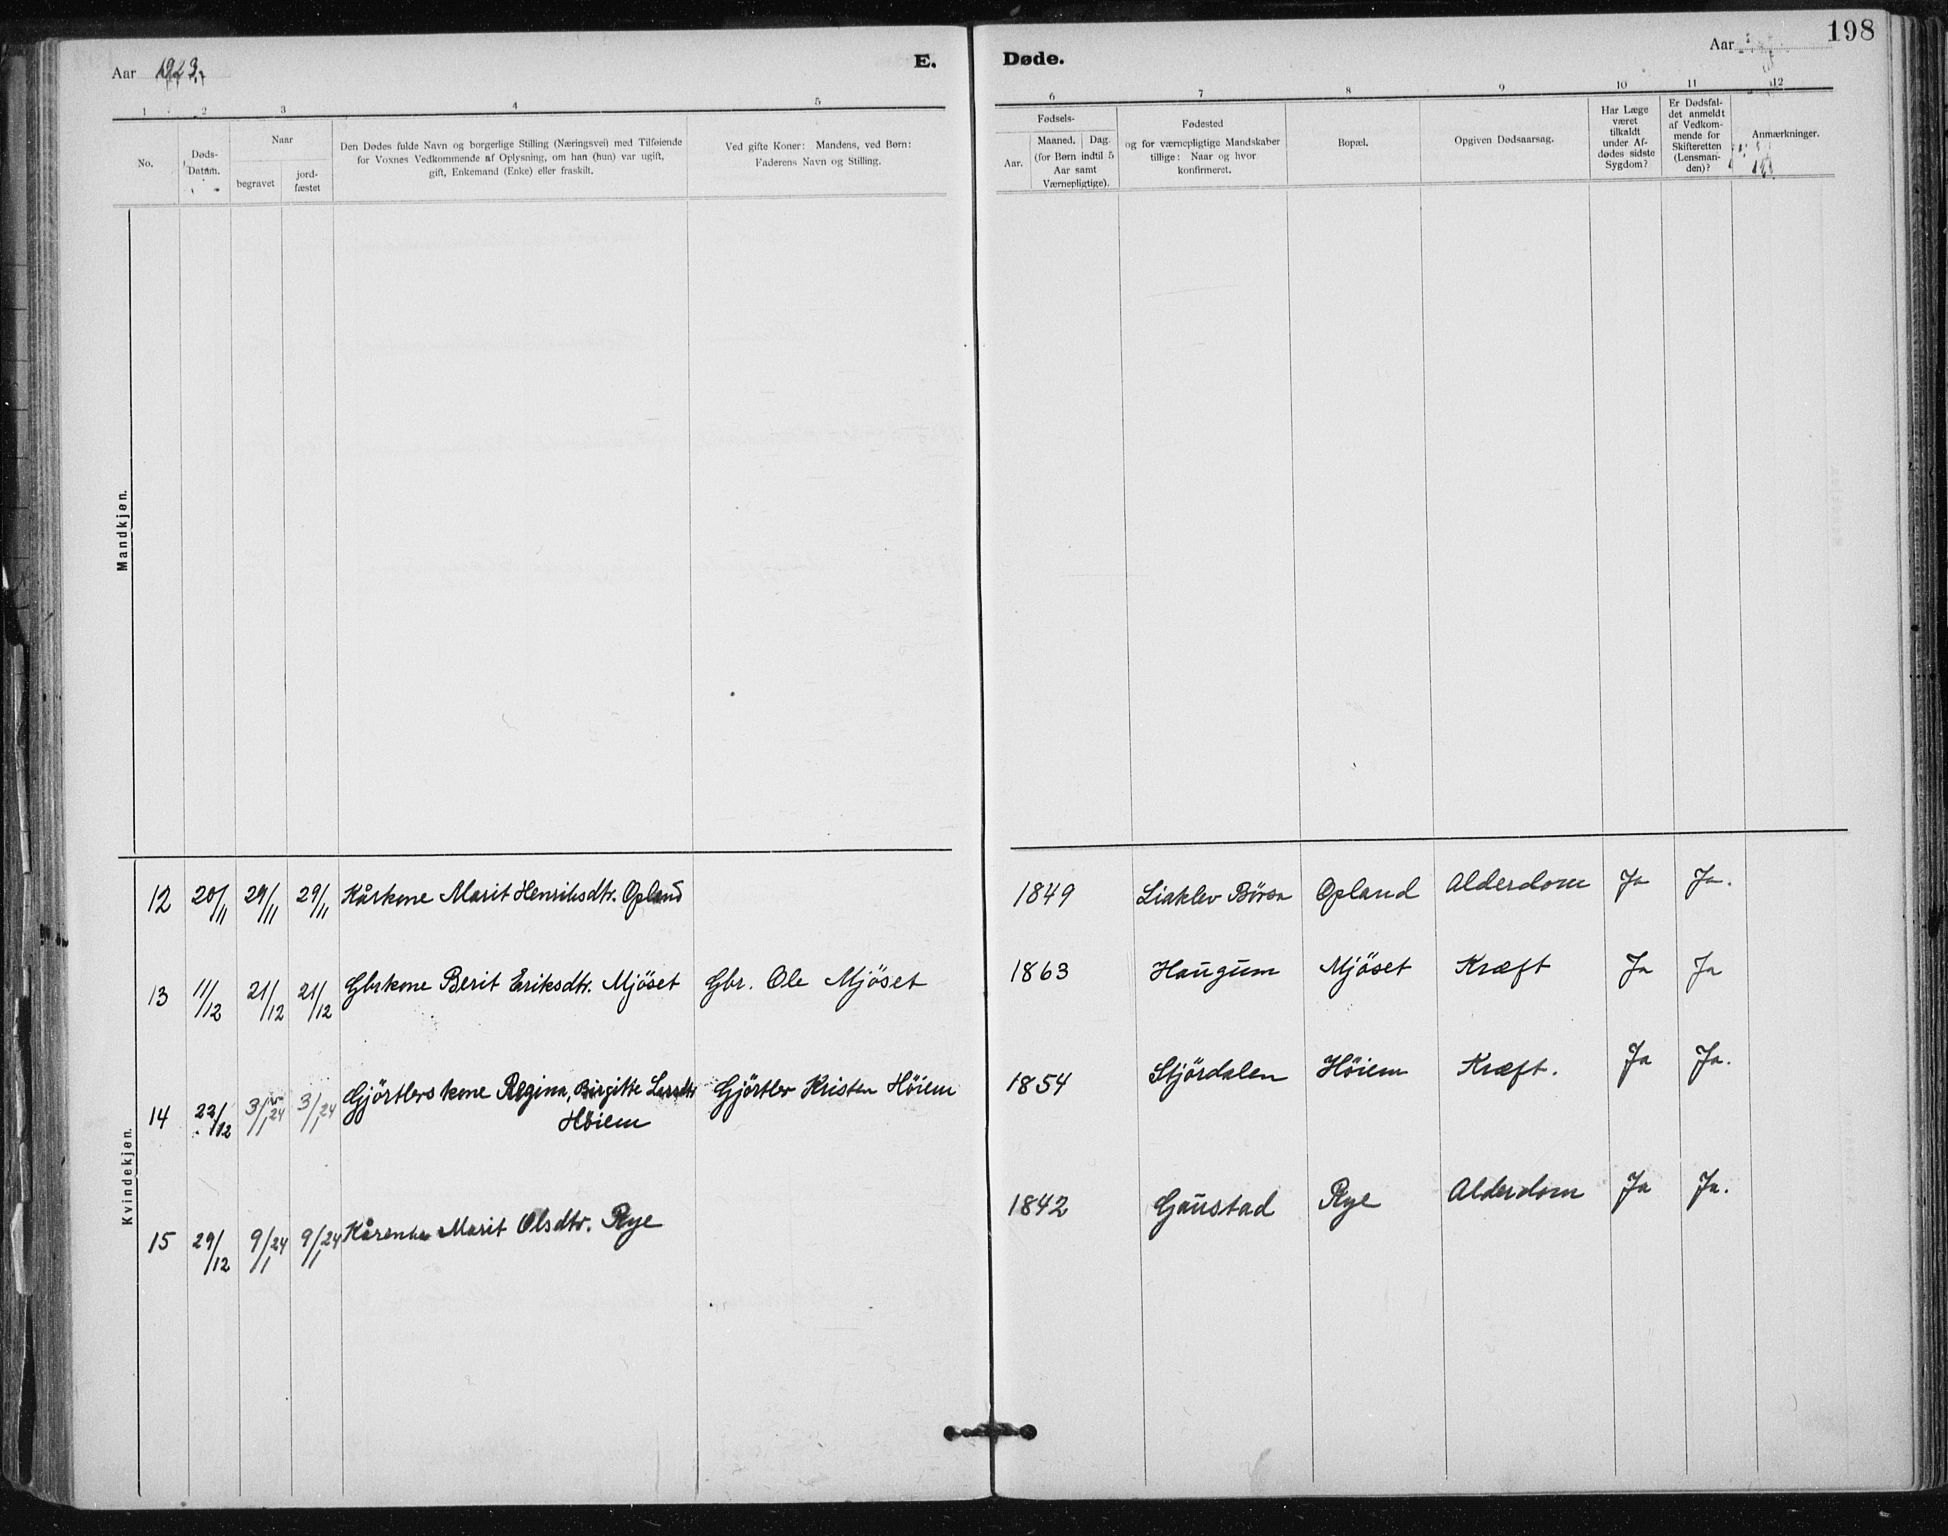 198
Aar 1923.
E. Døde.
Aar
1 2 3 4 5 6 7 8 9 10 11 12
No.
Døds-
Datum.
Naar
begravet
jord-
fæstet
Den Dødes fulde Navn og borgerlige Stilling (Næringsvei) med Tilføiende
for Voxnes Vedkommende af Oplysning, om han (hun) var ugift,
gift, Enkemand (Enke) eller fraskilt.
Ved gifte Koner: Mandens, ved Børn:
Faderens Navn og Stilling.
Fødsels-
Aar.
Maaned. Dag.
(for Børn indtil 5
Aar samt
Værnepligtige).
Fødested
og for værnepligtige Mandskaber
tillige: Naar og hvor
konfirmeret.
Bopæl.
Opgiven Dødsaarsag.
Har Læge
været
tilkaldt
under Af-
dødes sidste
Sygdom?
Er Dødsfal-
det anmeldt
af Vedkom-
mende for
Skifteretten
(Lensman-
den)?
Anmærkninger.
Mandkjøn.
Kvindekjøn.
12 20/11 29/11 29/11 Kårkone Marit Henriksdtr. Opland 1849 Liaklev Børsa Opland Alderdom Ja Ja.
13 11/12 21/12 21/12 Gbrkone Berit Eriksdtr. Mjöset Gbr. Ole Mjöset 1863 Haugum Mjöset Kræft Ja Ja
14 22/12 3/1 24 3/1 24 Gjörtlers kone Regina, Birgitte Larsdtr Gjörtler Kristen Höiem 1854 Stjördalen Höiem Kræft. Ja Ja.
Höiem
15 29/12 9/1 24 9/1 24 Kårenke Marit Olsdtr. Rye 1842 Gaustad Rye Alderdom Ja Ja.